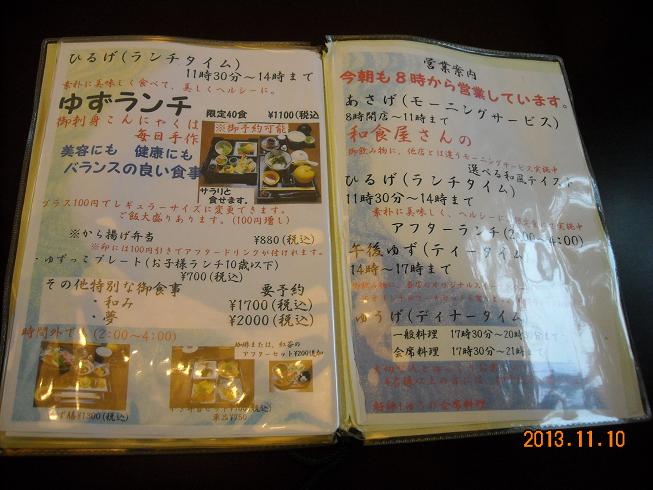 ひるげ(ランチタイム)
11時30分～14時まで
素朴に美味しく食べて、美しくヘルシーに。
ゆずランチ 限定40食 ¥1100(税込
御刺身こんにゃくは
毎日手作
※御予約可能
美容にも 健康にも
バランスの良い食事
サラリと
食せます。
プラス100円でレギュラーサイズに変更できます。
ご飯大盛りあります。(100円増し)
※から揚げ弁当 ¥880(税込)
※印には100円引きでアフタードリンクが付けれます。
・ゆずっこプレート(お子様ランチ10歳以下)
¥700(税込)
その他特別な御食事 要予約
・和み ¥1700(税込)
・夢 ¥2000(税込)
時間外で (2:00～4:00)
珈琲または、紅茶の
アフターセット¥200追加
¥1300(税込)
単品¥750
営業案内
今朝も8時から営業しています。
あさげ(モーニングサービス)
8時開店～11時まで
和食屋さんの
御飲み物に、他店とは違うモーニングサービス実施中
選べる和風テイスト
ひるげ(ランチタイム)
11時30分～14時まで
素朴に美味しく、ヘルシーに
アフターランチ(2:00～4:00)
午後ゆず(ティータイム)
14時～17時まで
ゆうげ(ディナータイム)
一般料理 17時30分～20時30分
会席料理 17時30分～21時
会席料理
2013.11.10